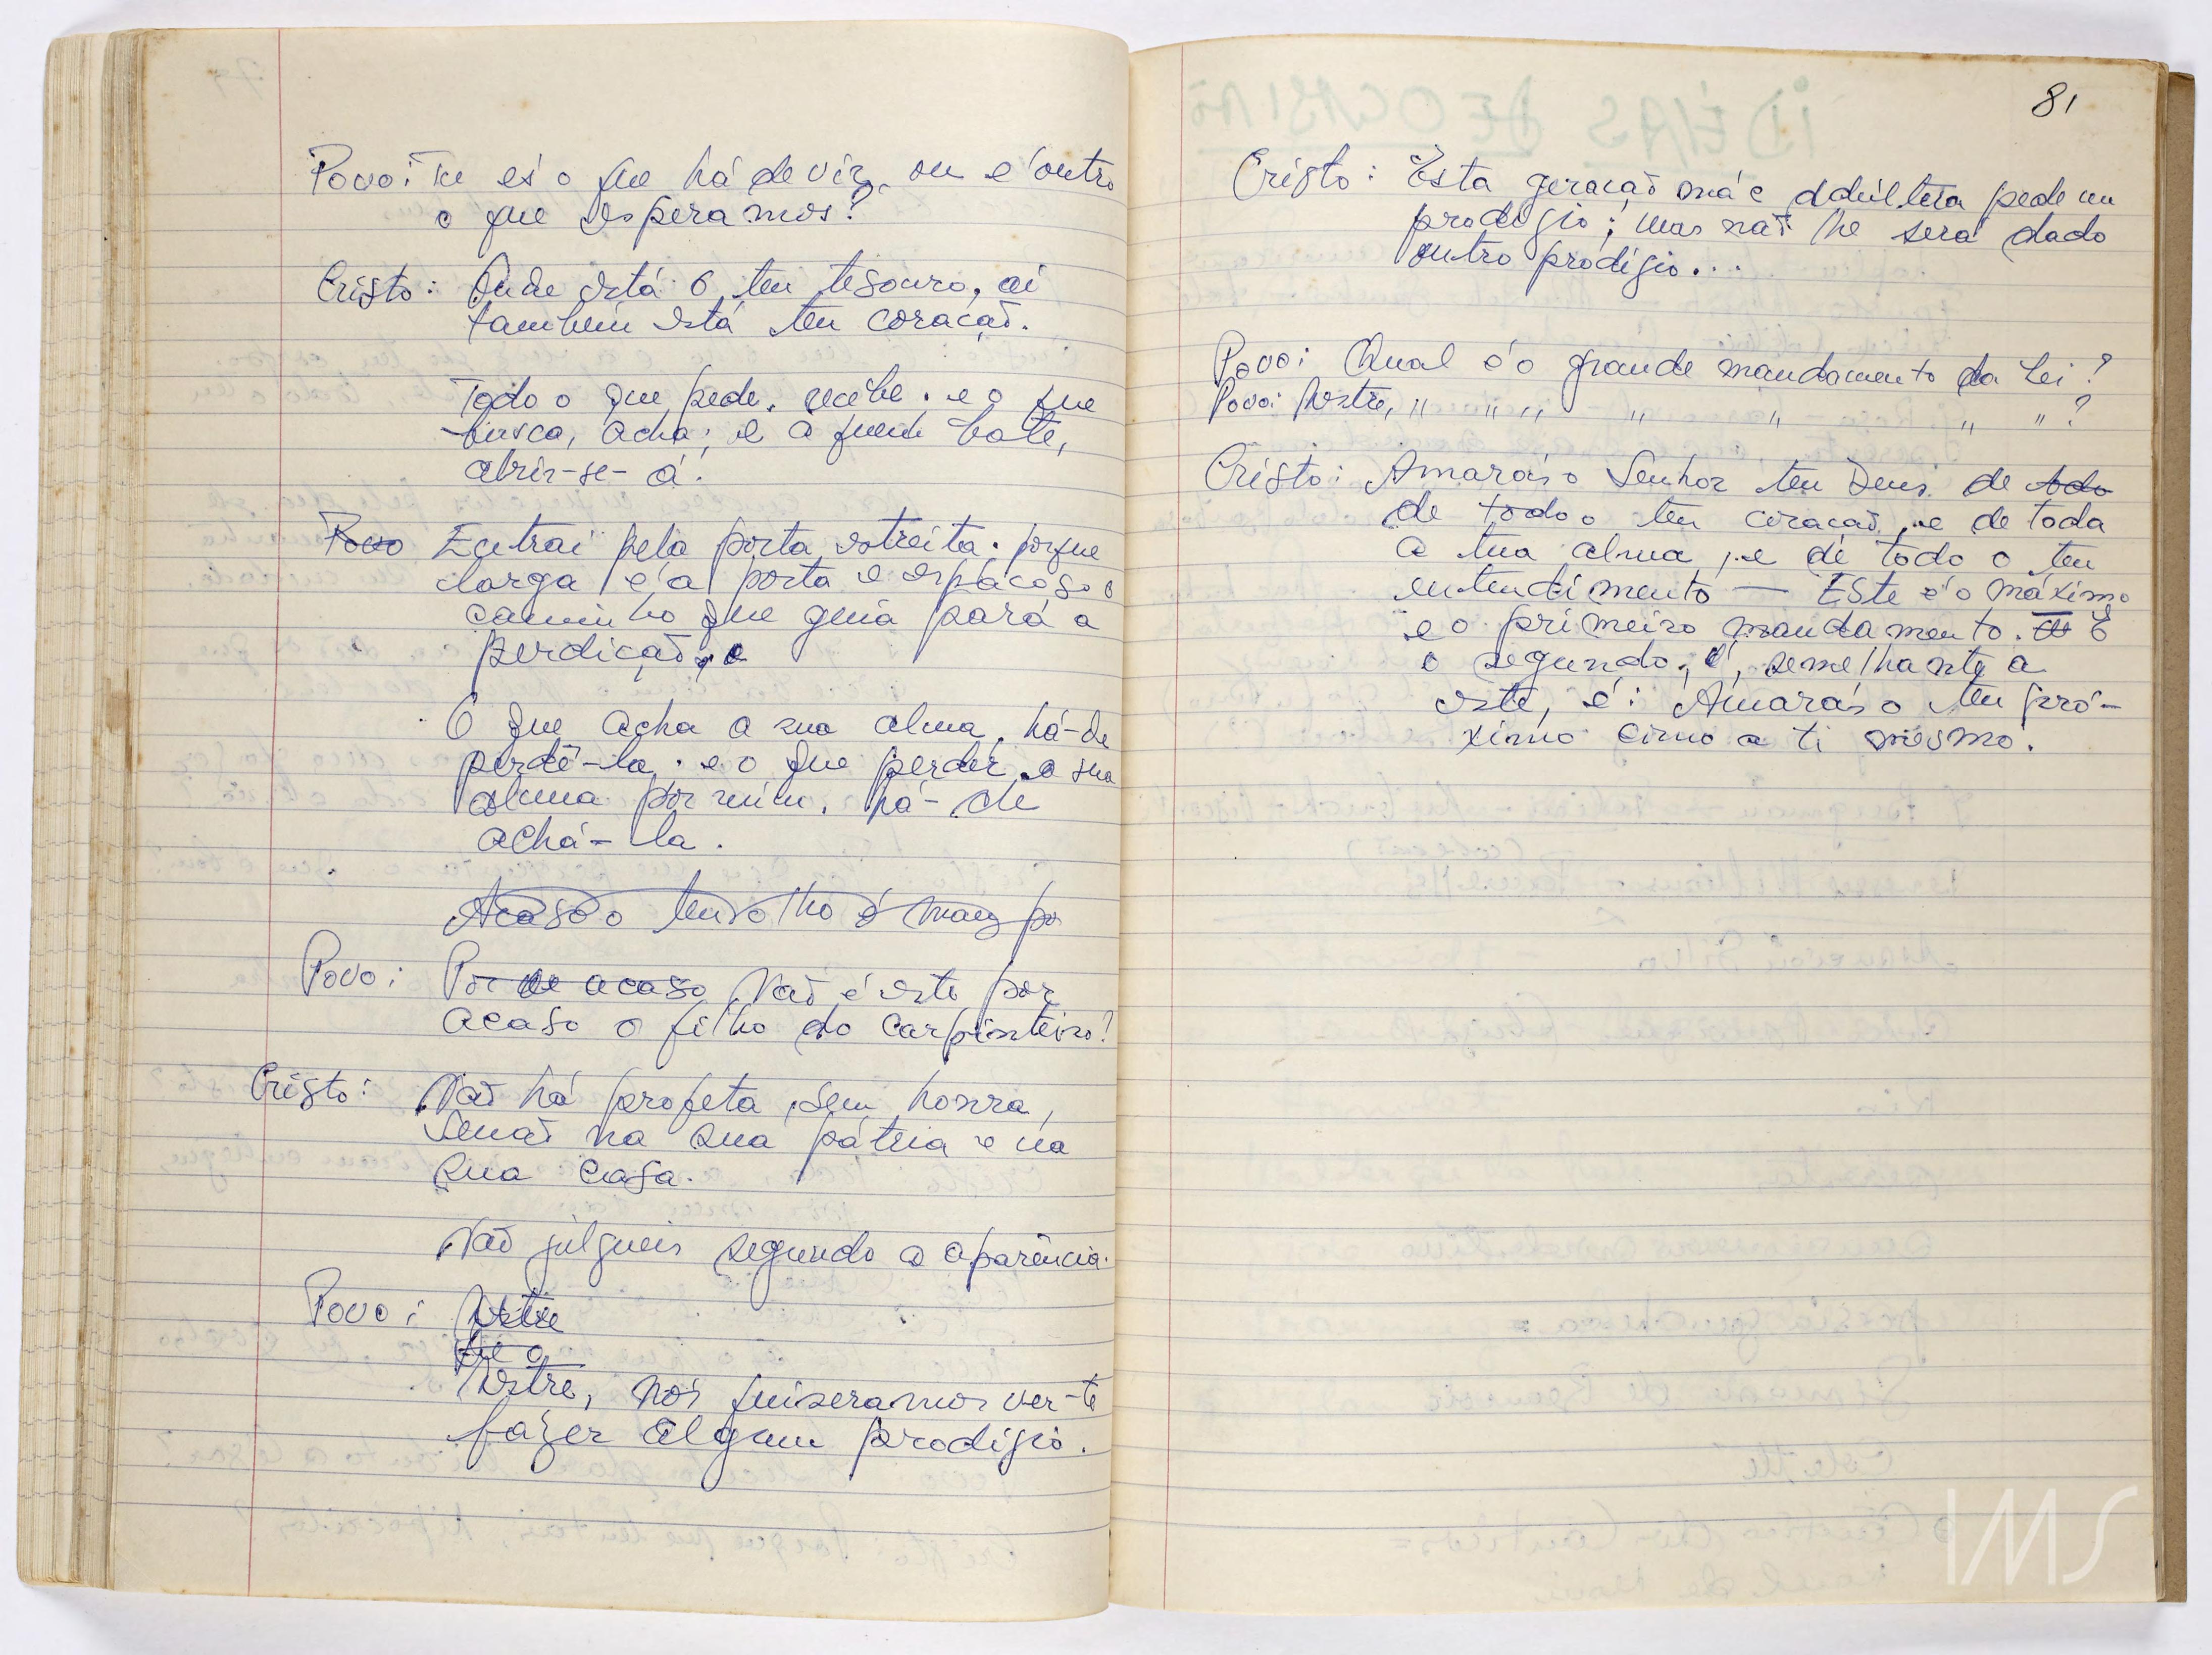 Povo: Tu és o que há de vir, ou é outro
o que esperamos?
Cristo: Onde está o teu tesouro, aí
também está teu coração.
Todo o que pede, recebe; e o que
busca, acha; e a quem bate,
abrir-se-á.
Povo Entrai pela porta estreita; porque
larga é a porta e espaçoso o
caminho que guia para a
perdição, e
O que acha a sua alma, há-de
perdê-la; e o que perder a sua
alma por mim, há-de
achá-la.
Acaso o teu olho é mau po
Povo: Por acaso Não é este por
acaso o filho do carpinteiro?
Cristo: Não há profeta sem honra,
senão na sua pátria e na
sua casa.
Não julgueis segundo a aparência.
Povo: Mestre
Mestre, nós quiseramos ver-te
fazer algum prodígio.
81
Cristo: Esta geração má e adúltera pede um
prodígio; mas não lhe será dado
outro prodígio...
Povo: Qual é o grande mandamento da Lei?
Povo: Mestre, " " " " " " "?
Cristo: Amarás o Senhor teu Deus de todo
de todo o teu coração, e de toda
a tua alma, e de todo o teu
entendimento — Este é o máximo
e o primeiro mandamento. E
o segundo, é, semelhante a
este, é: Amarás o teu pró-
ximo como a ti mesmo.
IMS